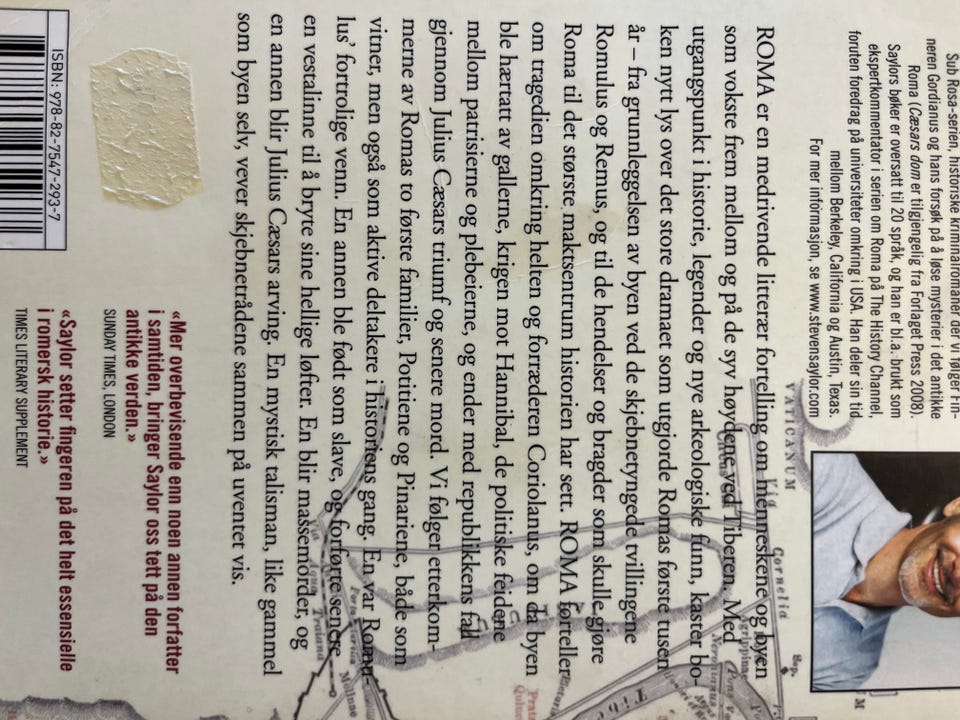 Sub Rosa-serien, historiske kriminalromaner der vi følger Fin-
neren Gordianus og hans forsøk på å løse mysterier i det antikke
Roma (Cæsars dom er tilgjengelig fra Forlaget Press 2008).
Saylors bøker er oversatt til 20 språk, og han er bl.a. brukt som
ekspertkommentator i serien om Roma på The History Channel,
foruten foredrag på universiteter omkring i USA. Han deler sin tid
mellom Berkeley, California og Austin, Texas.
For mer informasjon, se www.stevensaylor.com
ROMA er en medrivende litterær fortelling om menneskene og byen
som vokste frem mellom og på de syv høydene ved Tiberen. Med
utgangspunkt i historie, legender og nye arkeologiske funn, kaster bo-
ken nytt lys over det store dramaet som utgjorde Romas første tusen
år – fra grunnleggelsen av byen ved de skjebnetyngede tvillingene
Romulus og Remus, og til de hendelser og bragder som skulle gjøre
Roma til det største maktsentrum historien har sett. ROMA forteller
om tragedien omkring helten og forræderen Coriolanus, om da byen
ble hærtatt av gallerne, krigen mot Hannibal, de politiske feidene
mellom patrisierne og plebeierne, og ender med republikkens fall
gjennom Julius Cæsars triumf og senere mord. Vi følger etterkom-
merne av Romas to første familier, Potitiene og Pinariene, både som
vitner, men også som aktive deltakere i historiens gang. En var Romu-
lus' fortrolige venn. En annen ble født som slave, og forførte senere
en vestalinne til å bryte sine hellige løfter. En blir massemorder, og
en annen blir Julius Cæsars arving. En mystisk talisman, like gammel
som byen selv, vever skjebnetrådene sammen på uventet vis.
«Mer overbevisende enn noen annen forfatter
i samtiden, bringer Saylor oss tett på den
antikke verden.»
SUNDAY TIMES, LONDON
«Saylor setter fingeren på det helt essensielle
i romersk historie.»
TIMES LITERARY SUPPLEMENT
ISBN: 978-82-7547-293-7
VATICANUM
Via
Cornelia
Sep.
Aqua Traiana
Porta
Molinae
Prata